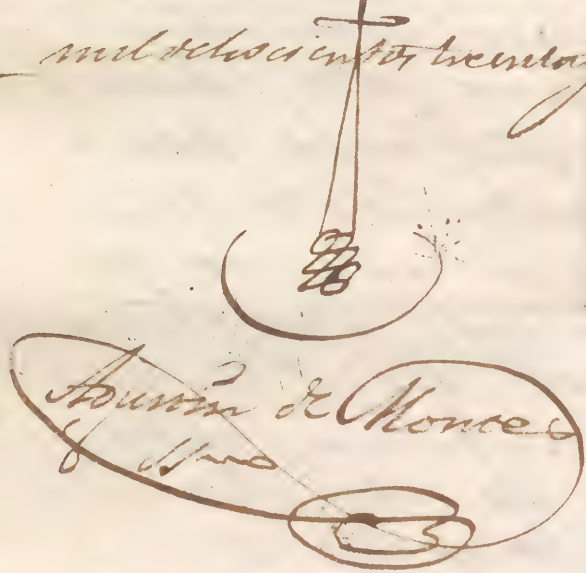 mil ochocientos treinta y
Agustin de Monte